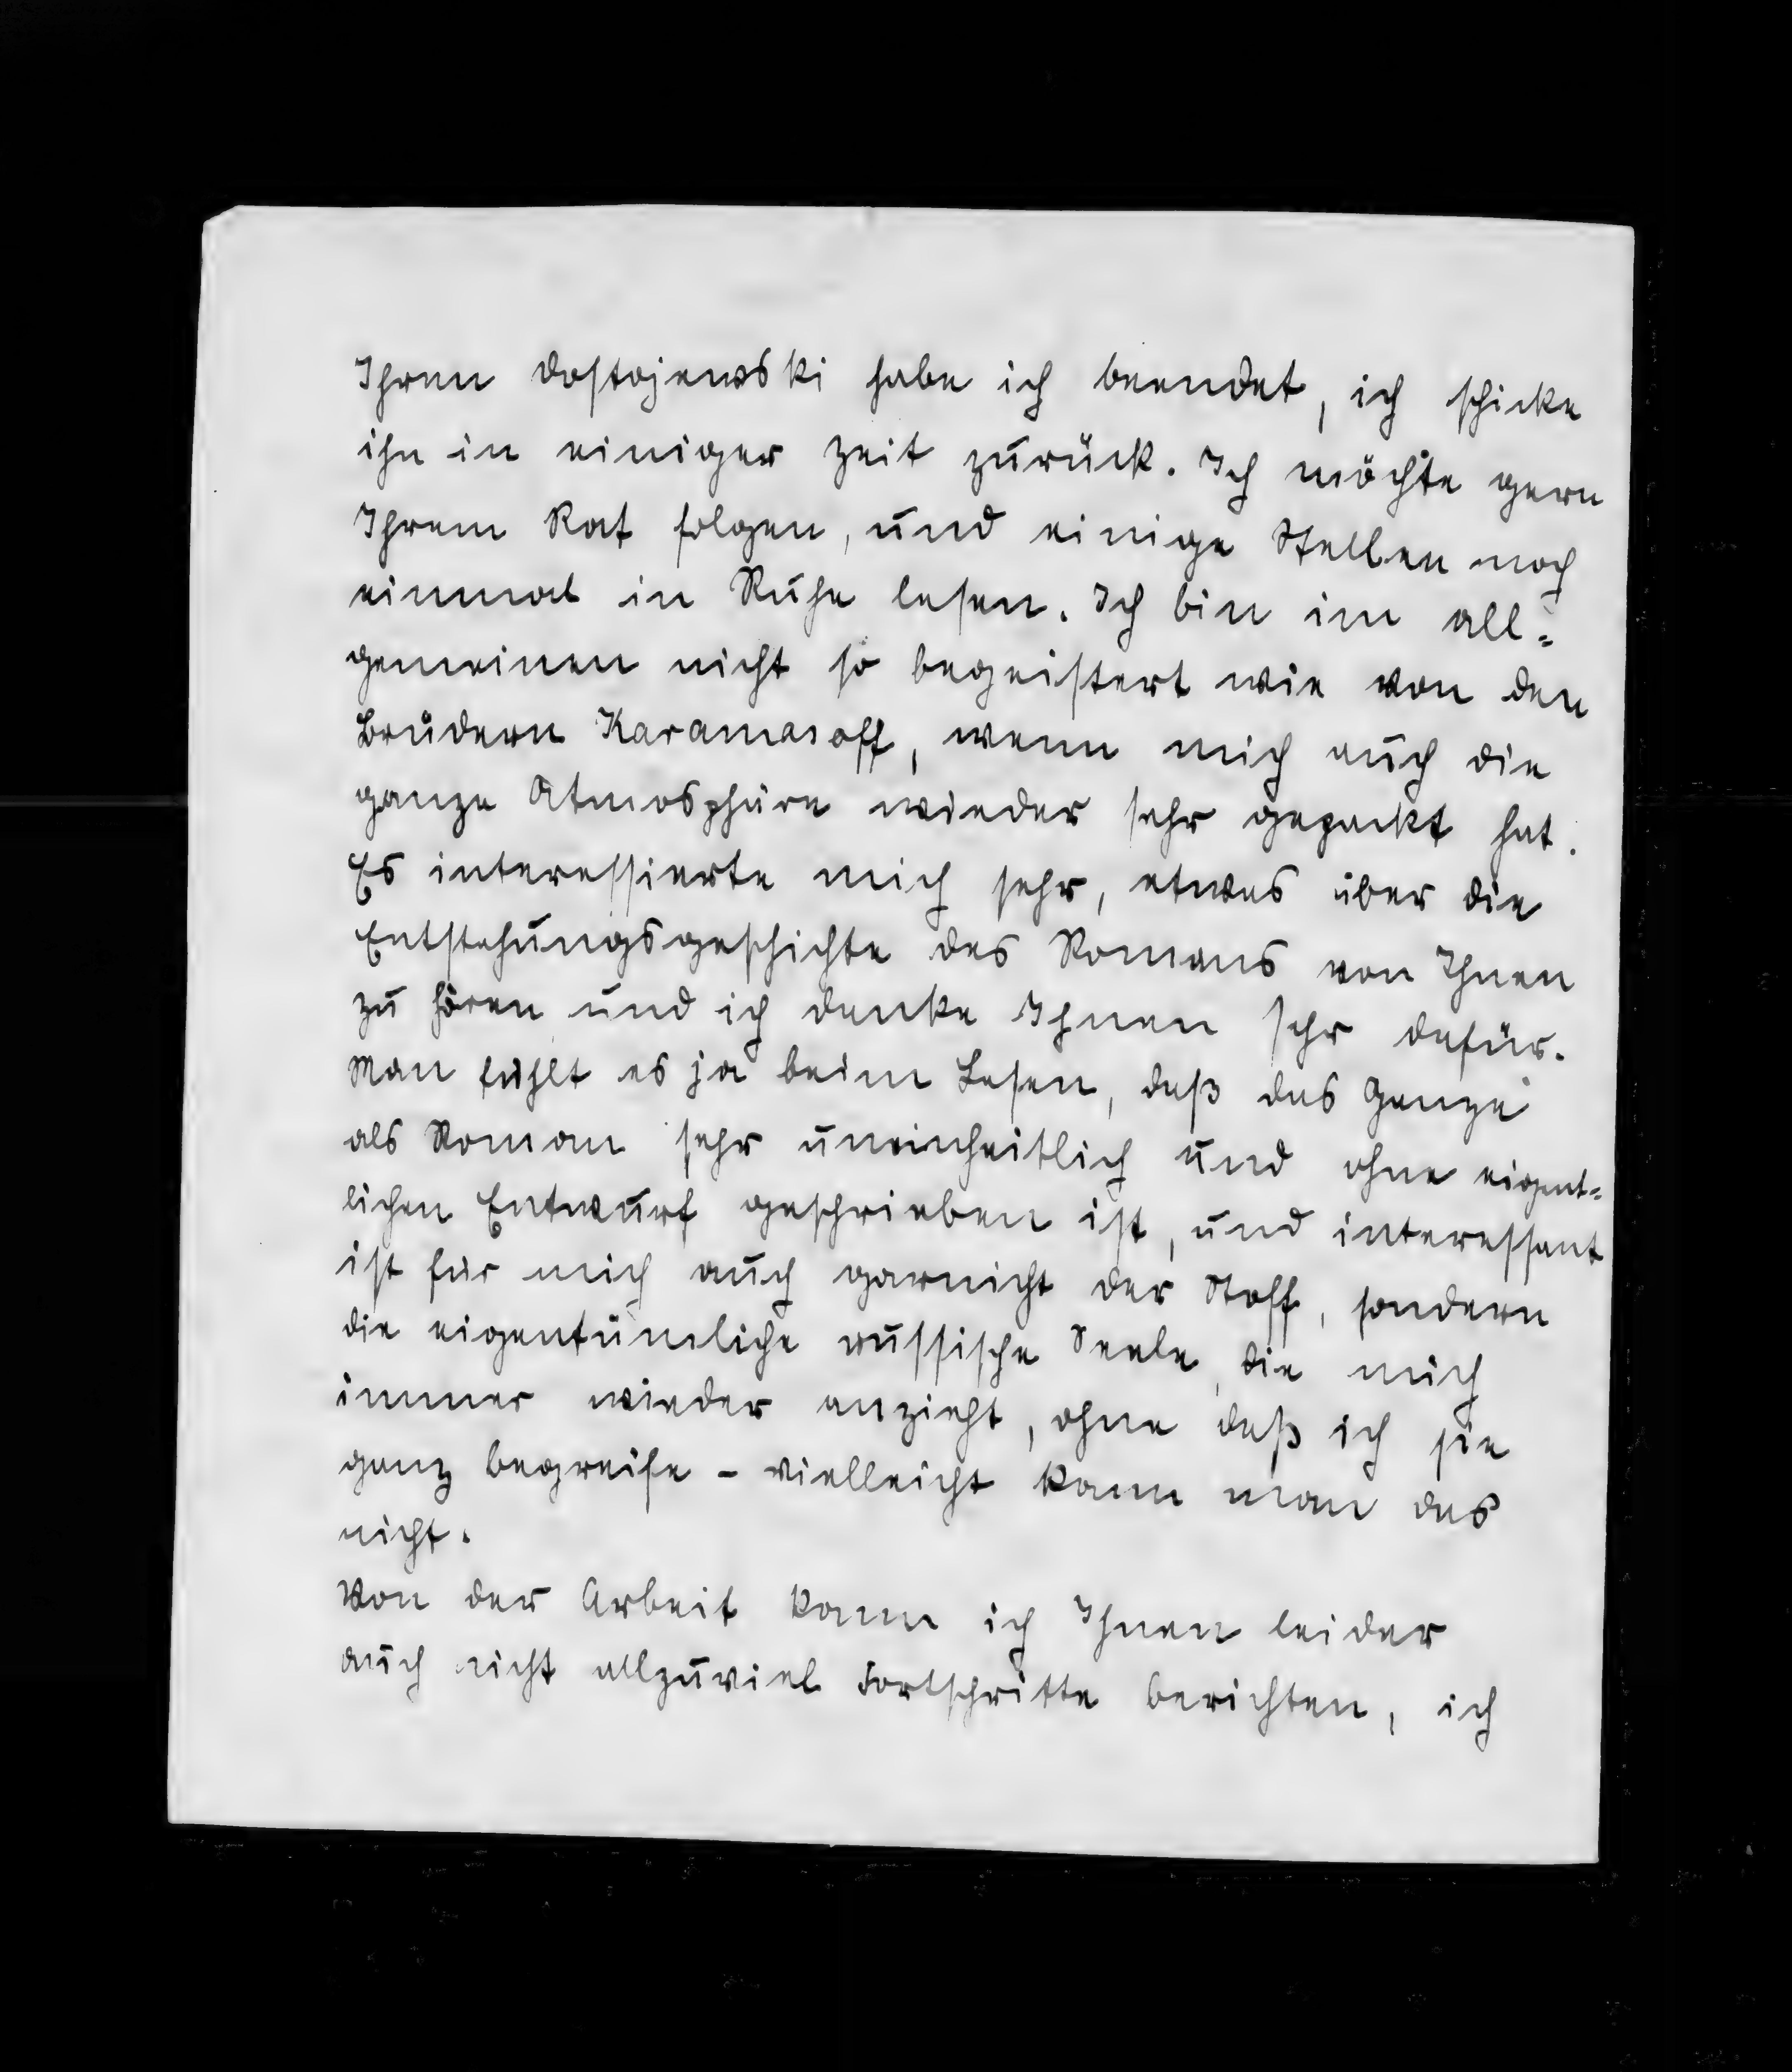 Ihren Dostojewski habe ich beendet, ich schicke
ihn in einiger Zeit zurück. Ich möchte gern
Ihrem Rat folgen, und einige Stellen noch
einmal in Ruhe lesen. Ich bin im all=
gemeinen nicht so begeistert wie von den
Brüdern Karamasoff, wenn mich auch die
ganze Atmosphäre wieder sehr gepackt hat.
Es interessierte mich sehr, etwas über die
Entstehungsgeschichte des Romans von Ihnen
zu hören und ich danke Ihnen sehr dafür.
Man fühlt es ja beim Lesen, daß das Ganze
als Roman sehr uneinheitlich und ohne eigent=
lichen Entwurf geschrieben ist, und interessant
ist für mich auch garnicht der Stoff, sondern
die eigentümliche russische Seele, die mich
immer wieder anzieht, ohne daß ich sie
ganz begreife - vielleicht kann man das
nicht.
Von der Arbeit kann ich Ihnen leider
auch nicht allzuviel Fortschritte berichten, ich